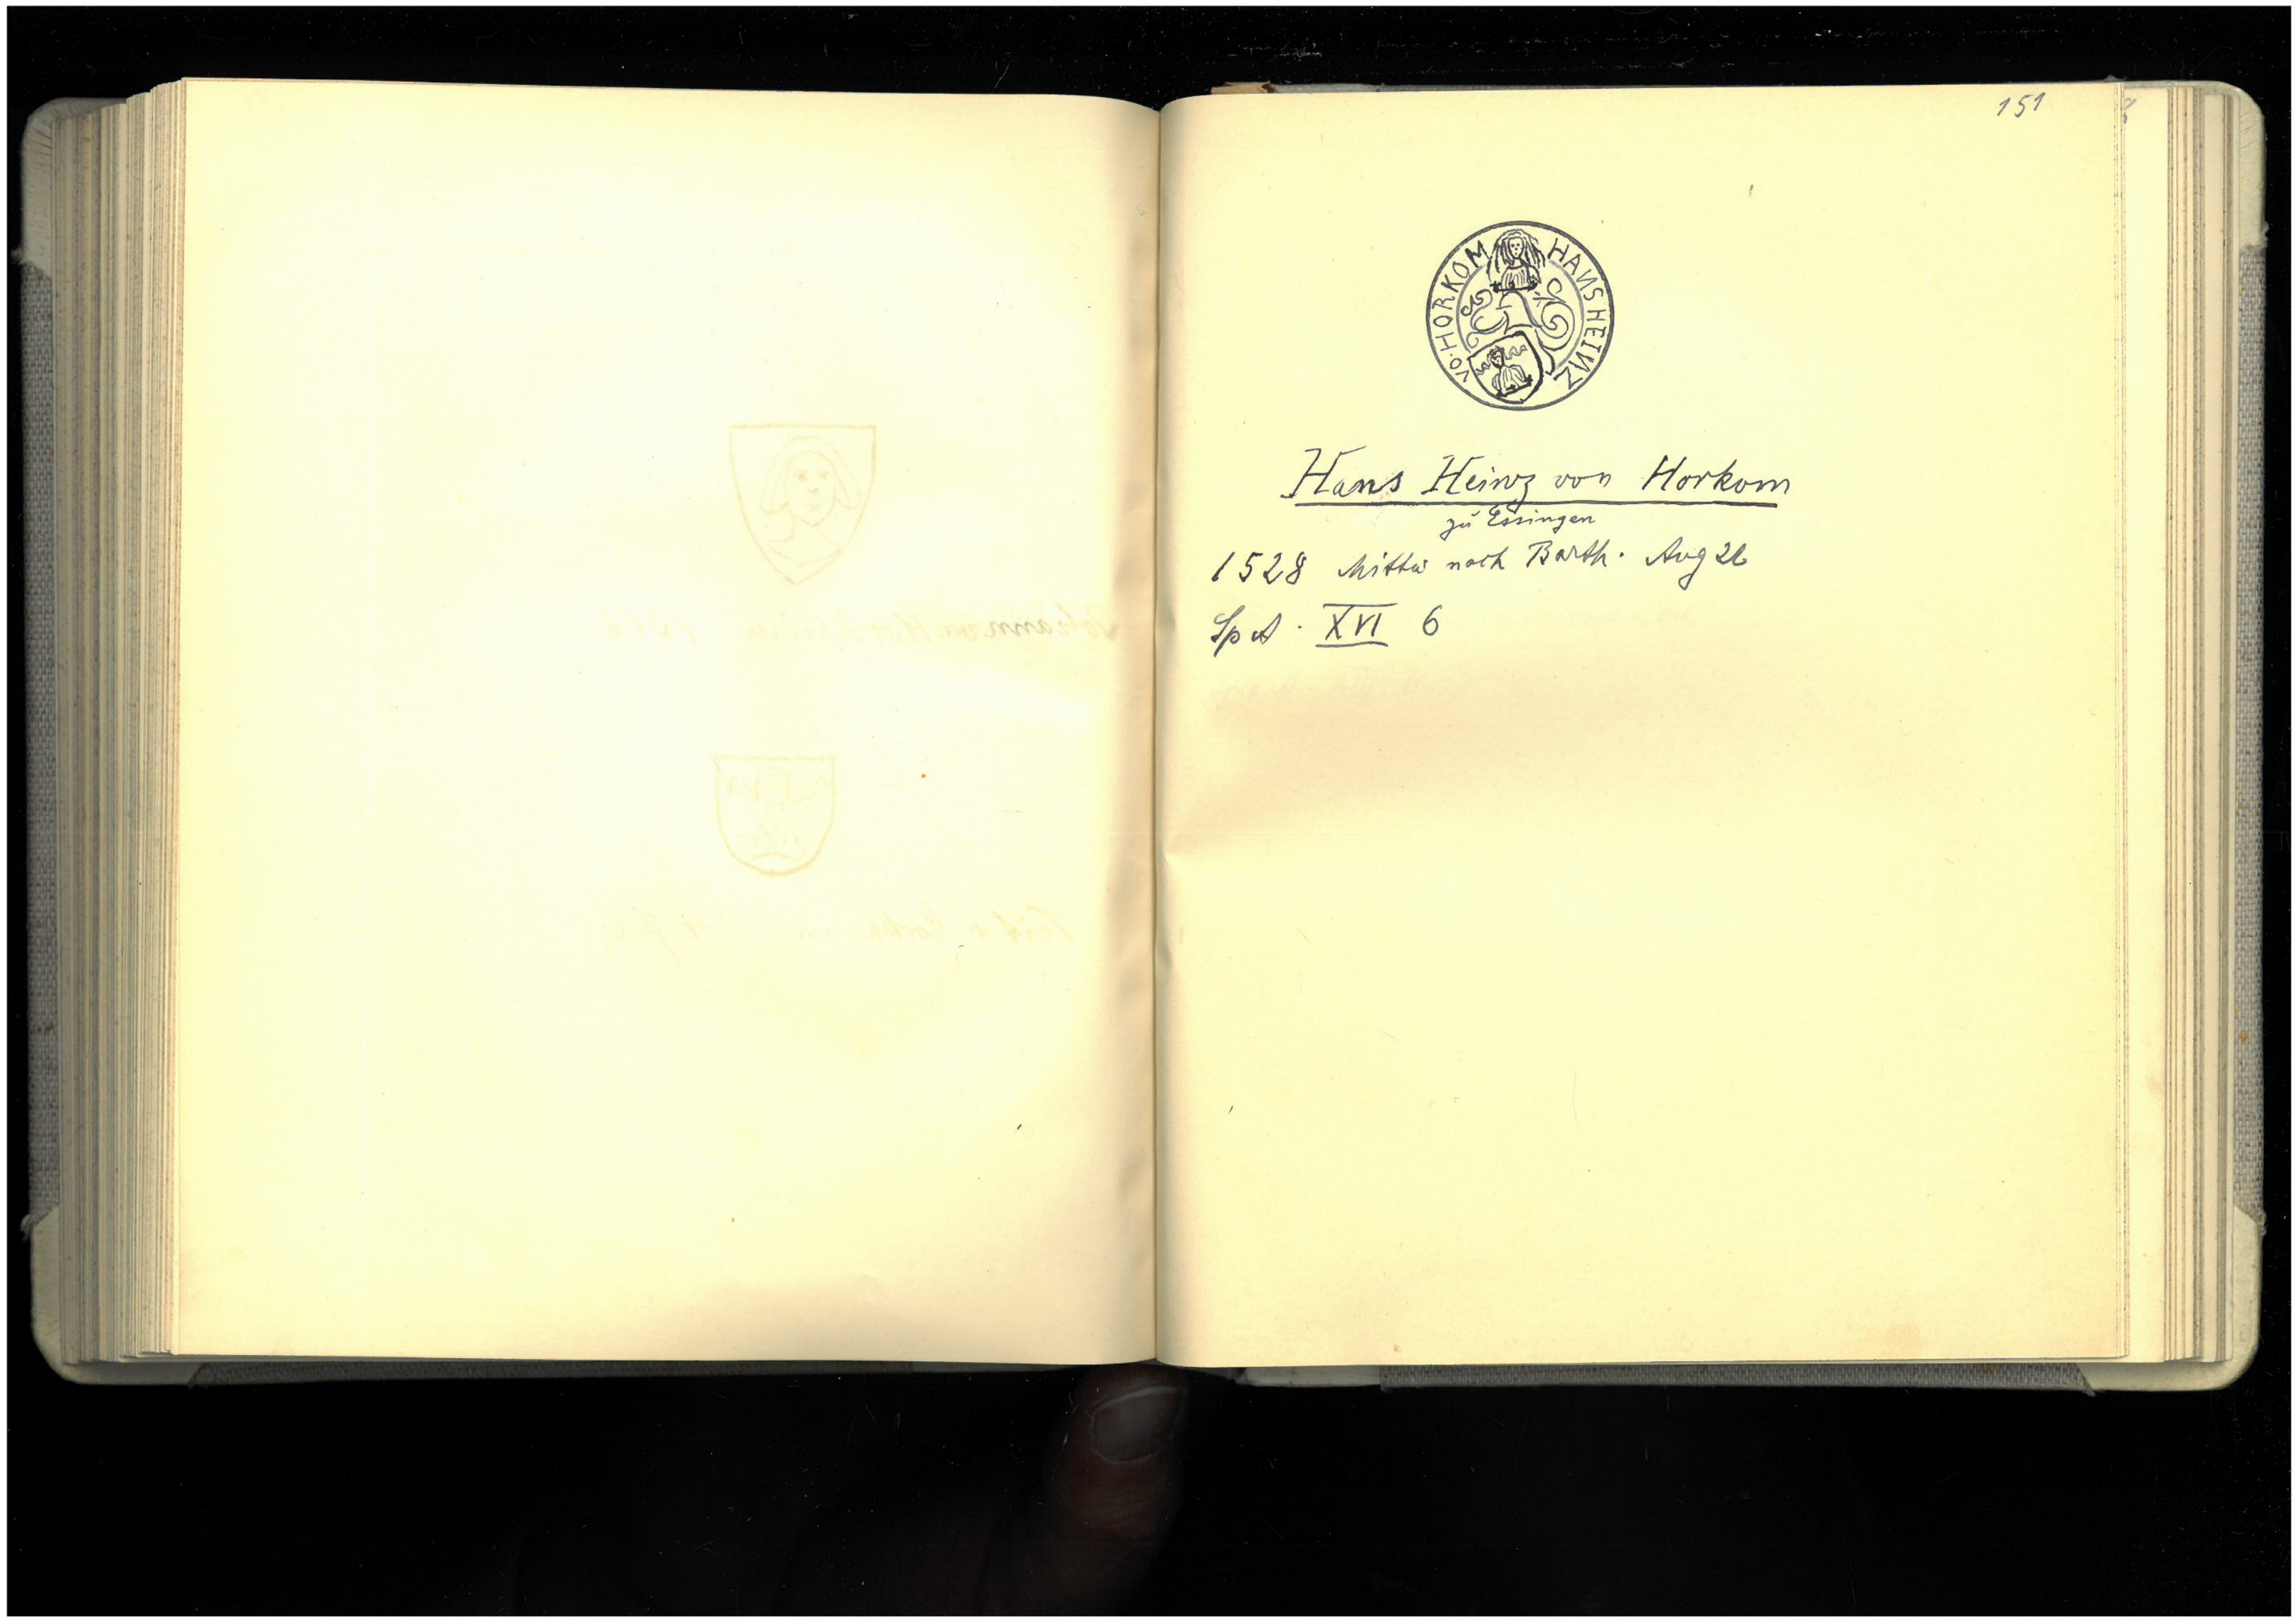 151
HANS HEINZ VO· HORKOM
Hans Heinz von Horkom
zu Essingen
1528 Mittw nach Barth. Aug 26
Sp A · XVI 6